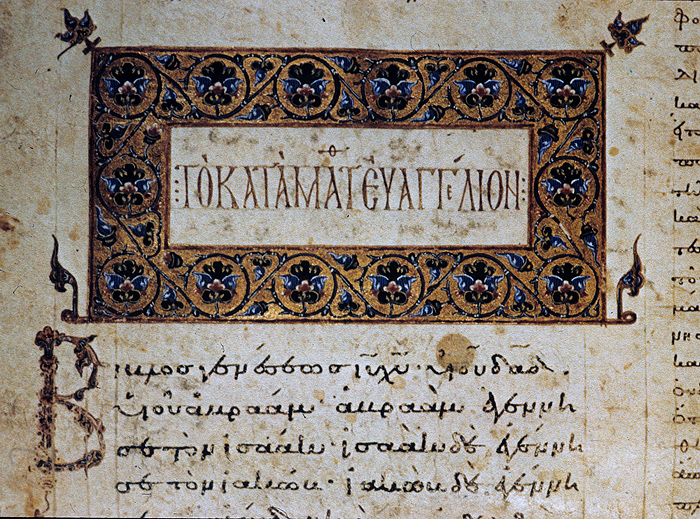 ⁝ΤὸΚΑΤᾺΜΑΤΘἘΥΑΓΓΈΛΙΟΝ⁝
Βίβλος γενέσεως ἰ̅υ̅ χ̅υ̅ υἱοῦ δα̅δ̅·
υἱοῦ ἀβραάμ· ἀβραὰμ ἐγέννη
σε τὸν ἰσαάκ· ἰσαὰκ δὲ ἐγέννη
σε τὸν ἰακώβ· ἰακὼβ δὲ ἐγέννη